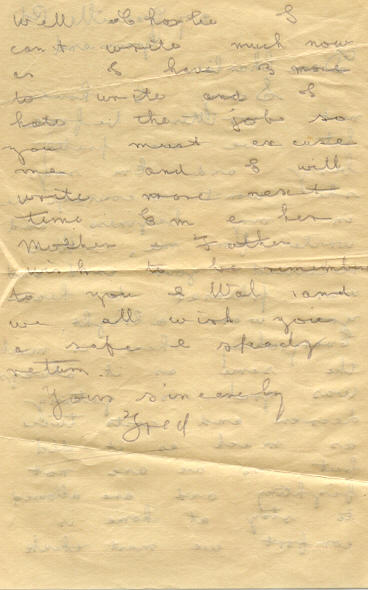 Well Chostie I
cant write much now
as I have 3 more
to write and I
hate the job so
you must excuse
me and I will
write more next
time Em e her
Mother e Father
wish to be remember
to you e Wal , and
we all wish you
a safe e speedy
return.
Yours sincereby
Fred